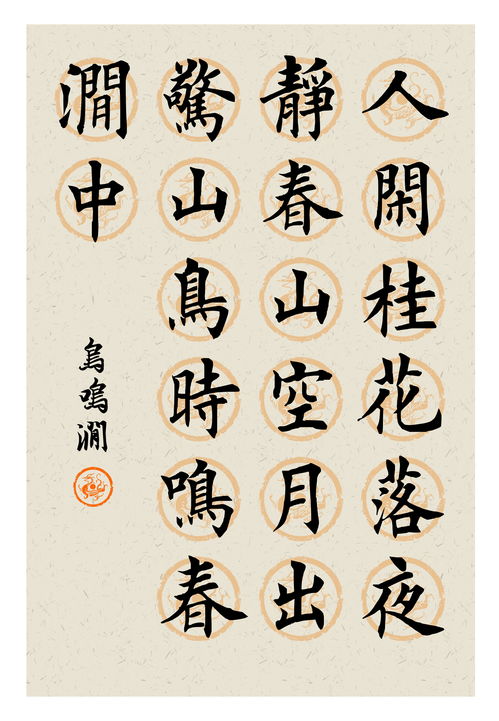 人閑桂花落夜
靜春山空月出
驚山鳥時鳴春
澗中
鳥鳴澗